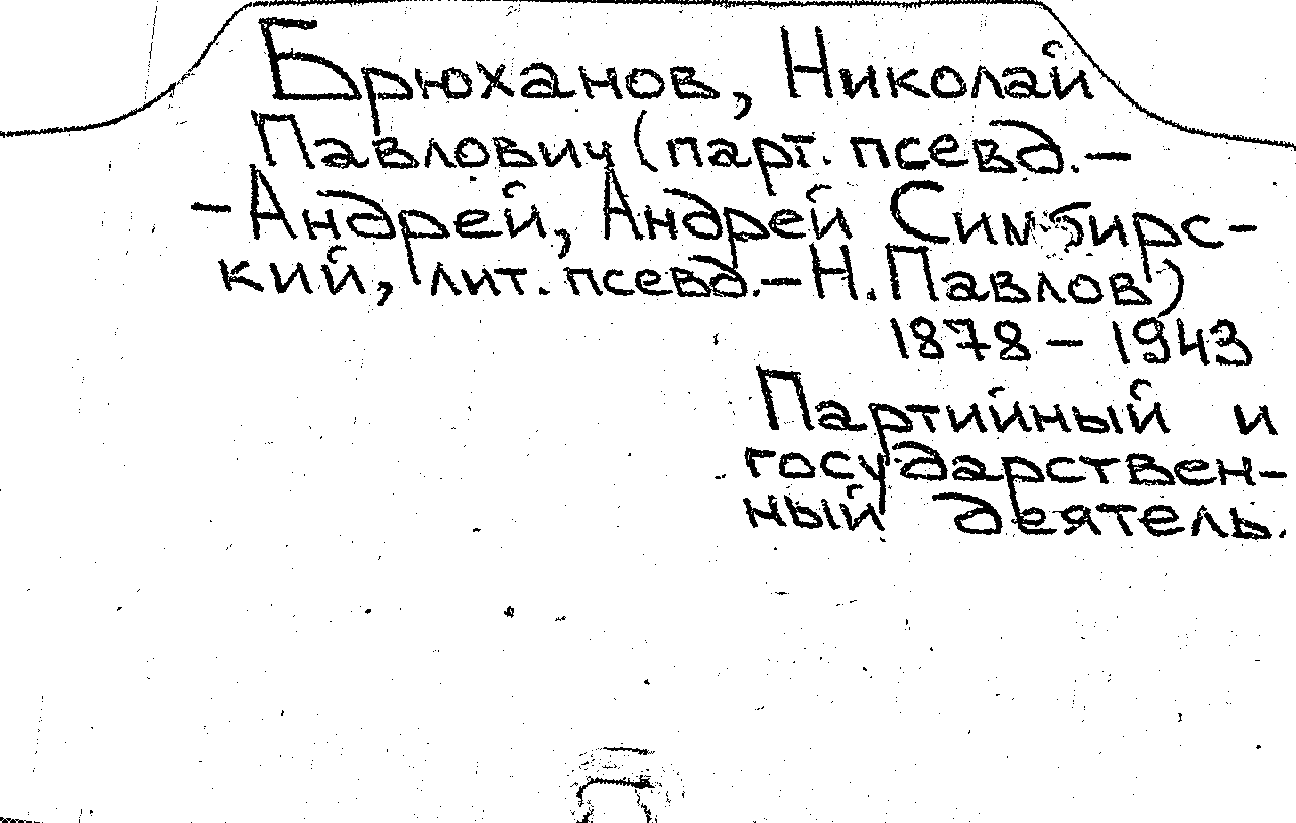 Брюханов, Николай
Павлович (парт. псевд.—
—Андрей, Андрей Симбирс-
кий, лит. псевд.—Н. Павлов)
1878 – 1943
Партийный и
государствен-
ный деятель.